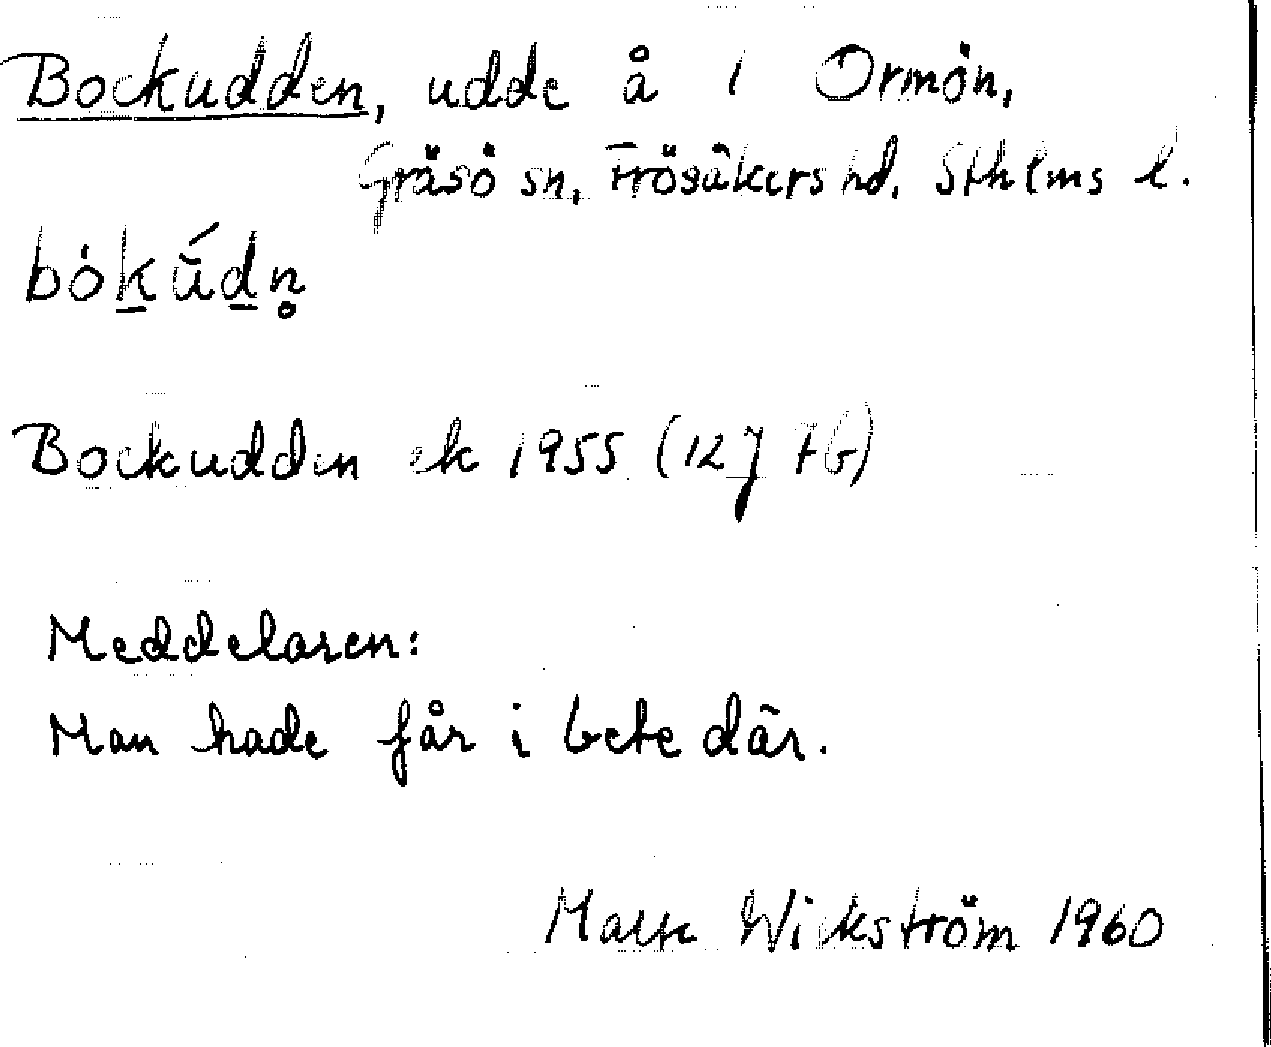 Bockudden, udde å 1 Ormön,
Gräsö sn, Frösåkers hd, Sthlms l.
Bockudden ek 1955 (12J 7G)
Meddelaren:
Man hade får i bete där.
Malte Wickström 1960